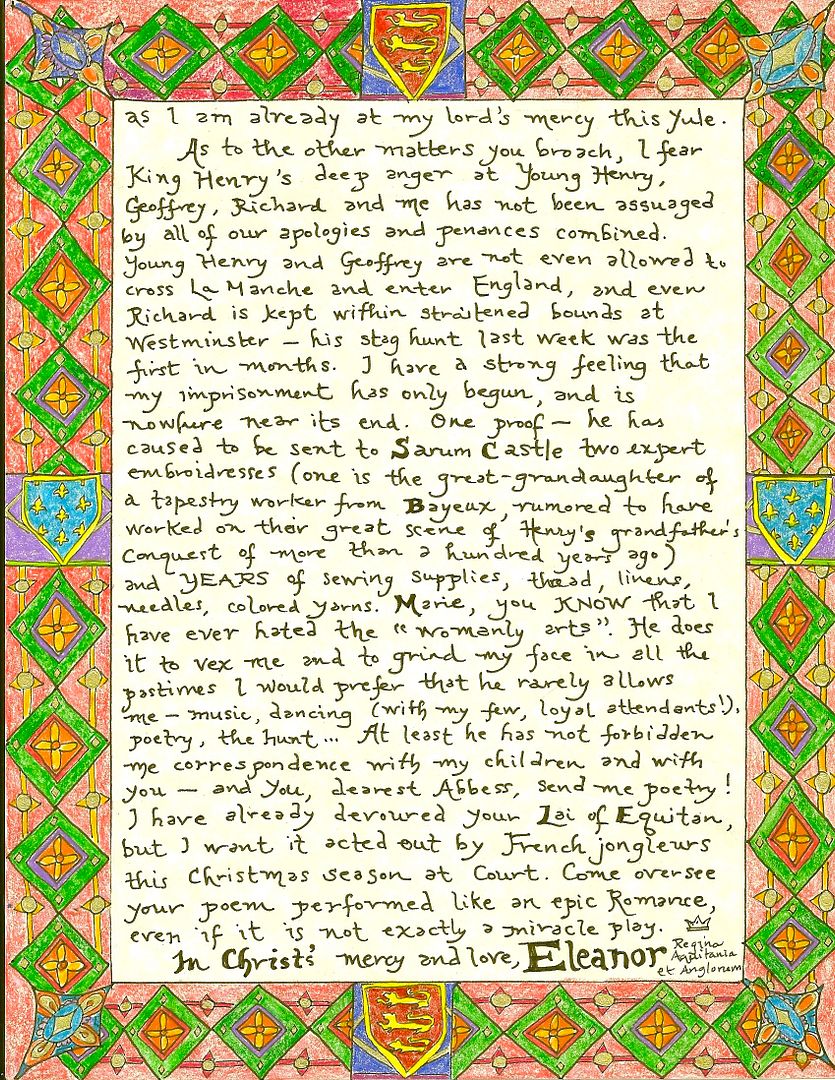 as I am already at my lord's mercy this Yule.
As to the other matters you broach, I fear
King Henry's deep anger at Young Henry,
Geoffrey, Richard and me has not been assuaged
by all of our apologies and penances combined.
Young Henry and Geoffrey are not even allowed to
cross La Manche and enter England, and even
Richard is kept within straitened bounds at
Westminster – his stag hunt last week was the
first in months. I have a strong feeling that
my imprisonment has only begun, and is
nowhere near its end. One proof – he has
caused to be sent to Sarum Castle two expert
embroidresses (one is the great-grandaughter of
a tapestry worker from Bayeux, rumored to have
worked on their great scene of Henry's grandfather's
conquest of more than a hundred years ago)
and YEARS of sewing supplies, thread, linens,
needles, colored yarns. Marie, you KNOW that I
have ever hated the "womanly arts". He does
it to vex me and to grind my face in all the
pastimes I would prefer that he rarely allows
me – music, dancing (with my few, loyal attendants!),
poetry, the hunt... At least he has not forbidden
me correspondence with my children and with
you – and you, dearest Abbess, send me poetry!
I have already devoured your Lai of Equitan,
but I want it acted out by French jongleurs
this Christmas season at Court. Come oversee
your poem performed like an epic Romance,
even if it is not exactly a miracle play.
In Christ's mercy and love, Eleanor
Regina
Aquitania
et Anglorum